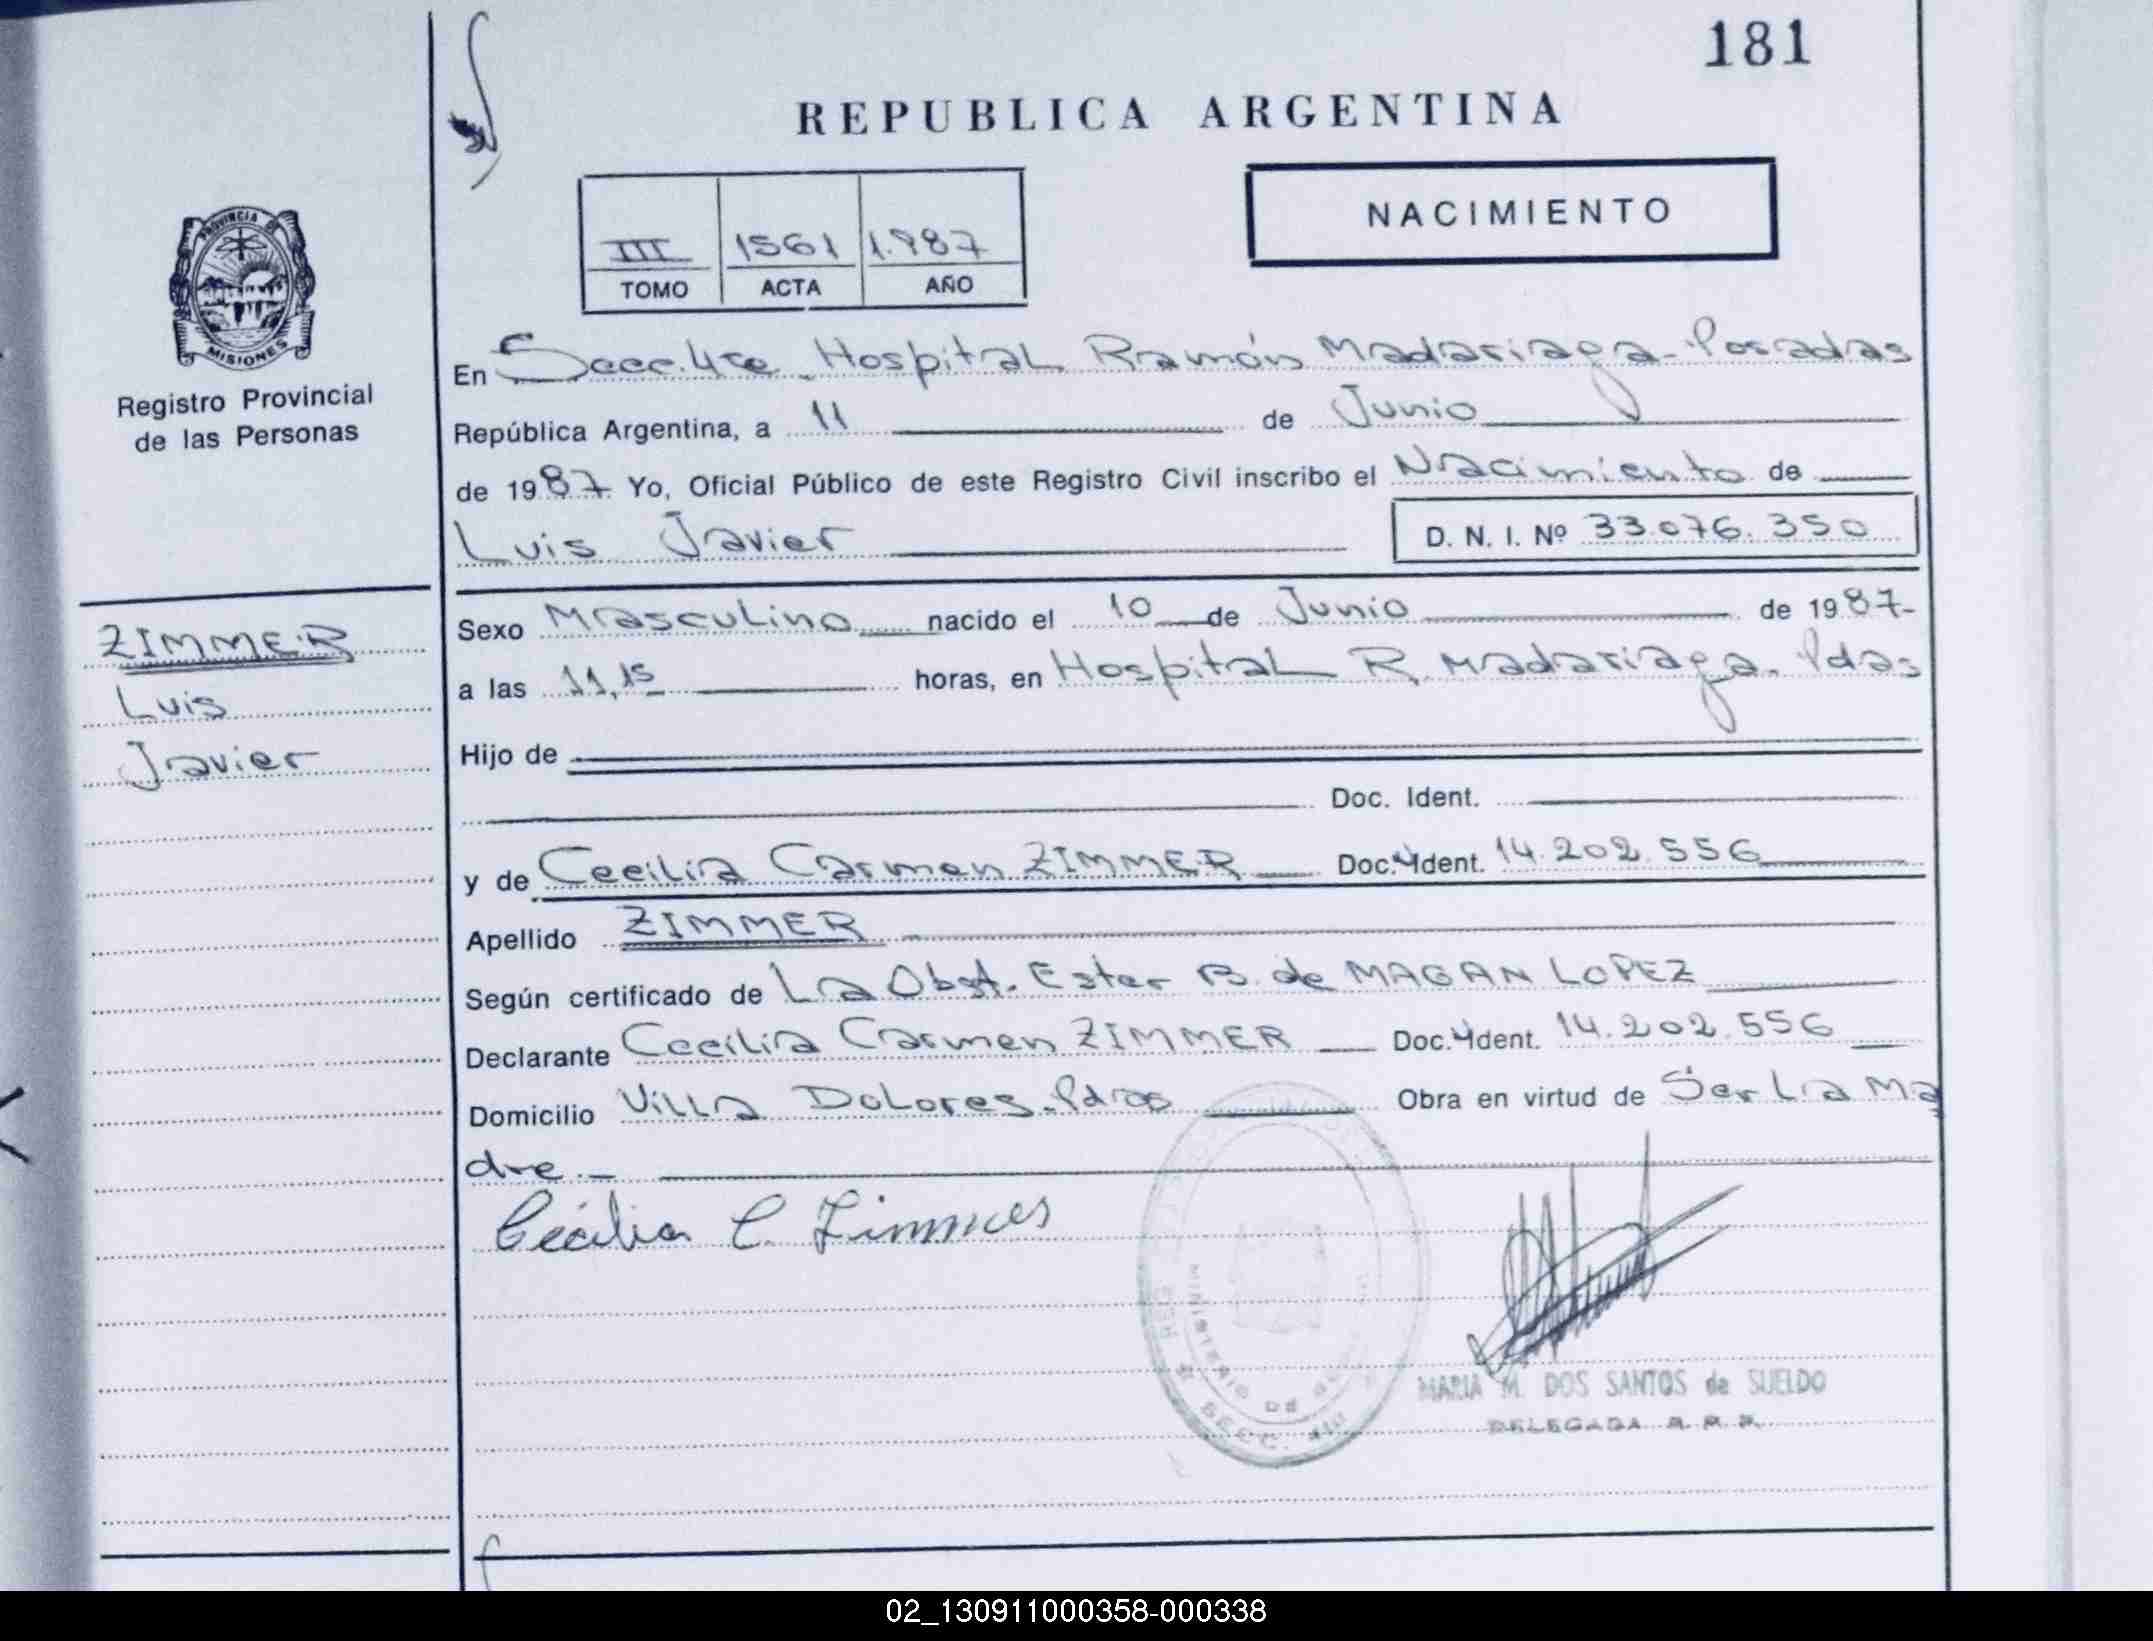 181
REPUBLICA ARGENTINA
NACIMIENTO
III 1561 1.987
TOMO ACTA AÑO
PROVINCIA DE
MISIONES
Registro Provincial
de las Personas
En Secc. 4ta. Hospital Ramón Madariaga - Posadas
República Argentina, a 11 de Junio
de 1987. Yo, Oficial Público de este Registro Civil inscribo el Nacimiento de
Luis Javier D. N. I. Nº 33.076.350
ZIMMER
Luis
Javier
Sexo Masculino nacido el 10 de Junio de 1987-
a las 11,15 horas, en Hospital R. Madariaga. Pdas
Hijo de
Doc. Ident.
y de Cecilia Carmen ZIMMER Doc. Ident. 14.202.556
Apellido ZIMMER
Según certificado de La Obst. Ester B. de MAGAN LOPEZ
Declarante Cecilia Carmen ZIMMER Doc. Ident. 14.202.556
Domicilio Villa Dolores. Pdas Obra en virtud de Ser La Ma
dre.-
Cecilia C. Zimmer
MINISTERIO DE
SECC. 4ta
MARIA M. DOS SANTOS de SUELDO
DELEGADA R. P. P.
02_130911000358-000338